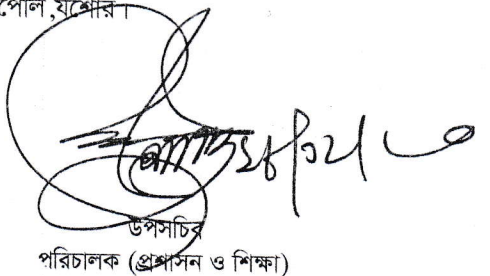 পোল ,যশোর।
উপসচিব
পরিচালক (প্রশাসন ও শিক্ষা)